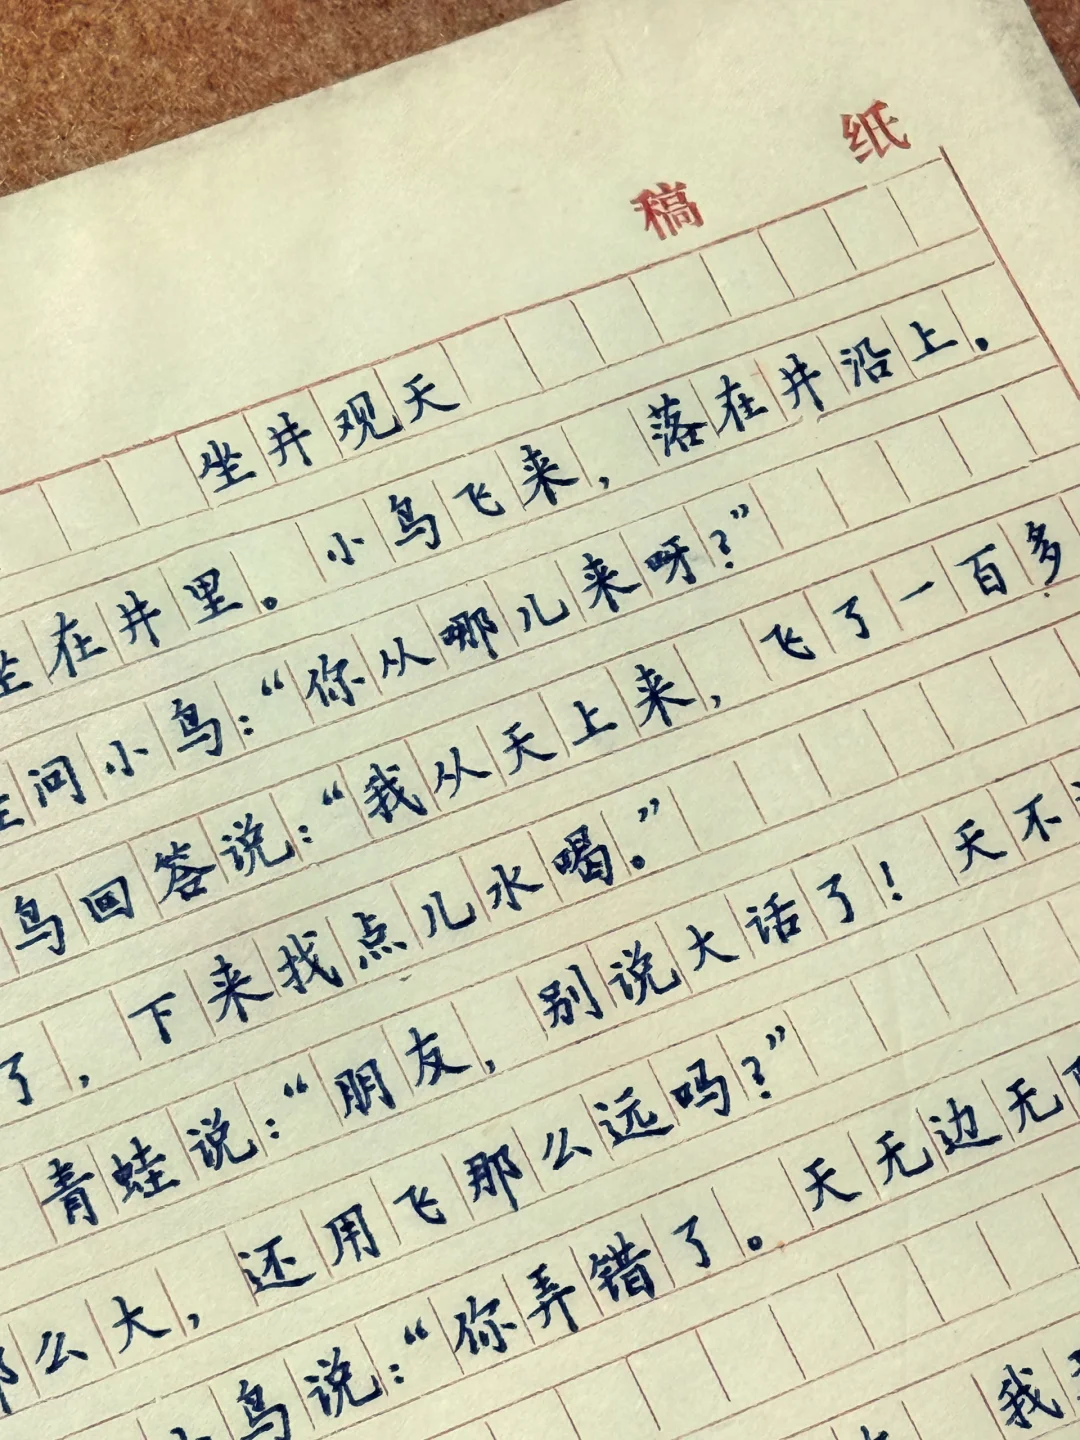 稿纸
坐井观天
坐在井里。小鸟飞来，落在井沿上。
问小鸟：“你从哪儿来呀？”
鸟回答说：“我从天上来，飞了一百多
了，下来找点儿水喝。”
青蛙说：“朋友，别说大话了！天不
么大，还用飞那么远吗？”
小鸟说：“你弄错了。天无边无
我